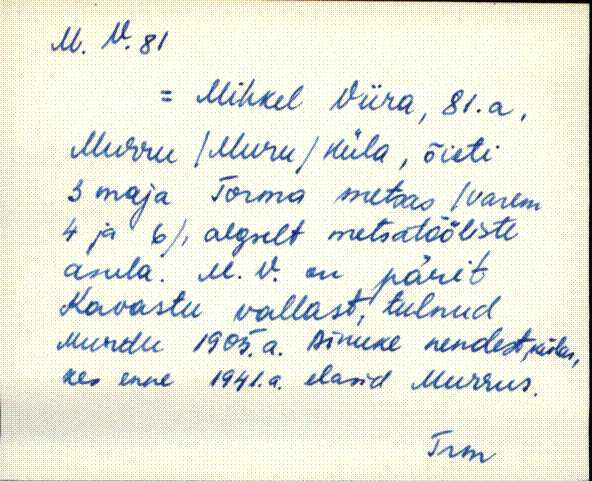 M. V. 81
= Mihkel Viira, 81. a,
Murru /Muru/ küla, õieti
3 maja Torma metsas /varem
4 ja 6/, algselt metsatööliste
asula. M. V. on pärit
Kavastu vallast, tulnud
Murdu 1905. a. Ainuke nendest,
kes enne 1941. a. elasid Murrus.
Trm